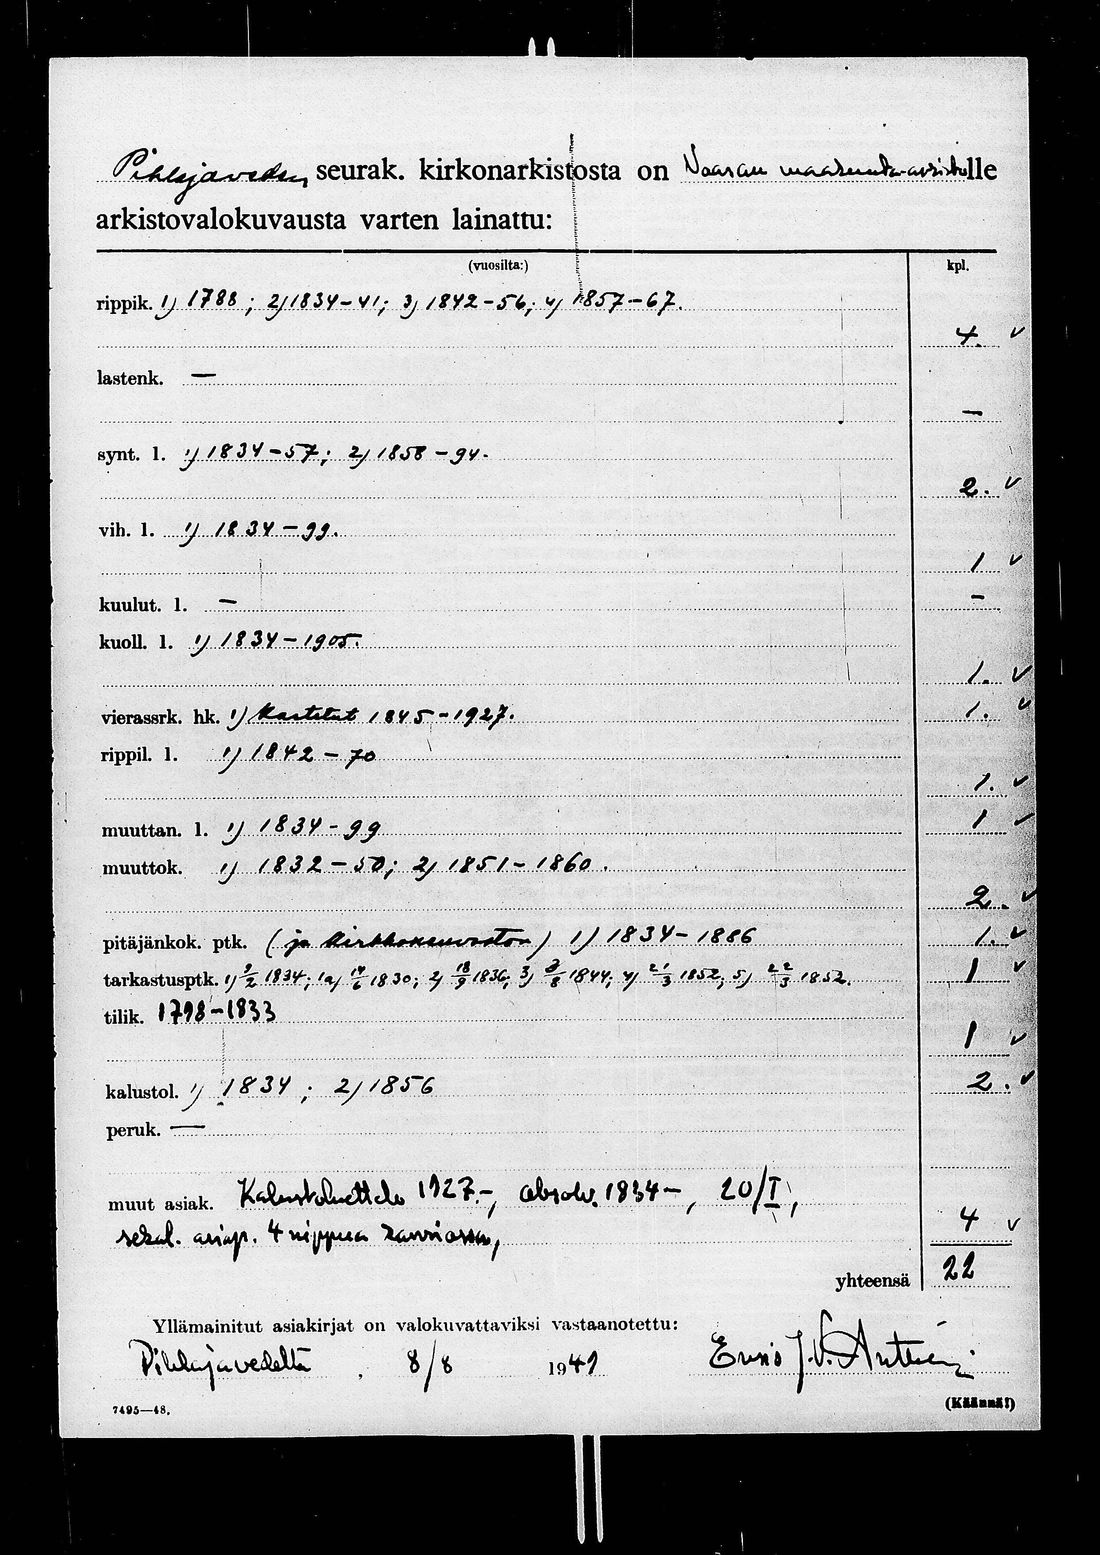 Pihlajaveden seurak. kirkonarkistosta on Vaasan maakunta-arkistolle
arkistovalokuvausta varten lainattu:
(vuosilta:) kpl.
rippik. 1) 1788 ; 2) 1834-41; 3) 1842-56; 4) 1857-67.
4. v
lastenk. —
—
synt. l. 1) 1834-57; 2) 1858-94.
2. v
vih. l. 1) 1834-99.
1 v
kuulut. l. — -
kuoll. l. 1) 1834-1905.
1. v
vierassrk. hk. 1) Kastetut 1845-1927. 1. v
rippil. l. 1) 1842-70
1. v
muuttan. l. 1) 1834-99 1 v
muuttok. 1) 1832-50; 2) 1851-1860.
2. v
pitäjänkok. ptk. (ja kirkkoneuvoston) 1) 1834-1886 1. v
tarkastusptk. 1) 2/2 1834; 1a) 14/6 1830; 2) 18/9 1836; 3) 8/8 1844; 4) 21/3 1852; 5) 22/3 1852. 1 v
tilik. 1798-1833
1 v
kalustol. 1) 1834 ; 2) 1856 2. v
peruk. —
muut asiak. Kalustoluettelo 1927-, absolv. 1834-, 20/I,
4 v
sekal. asiap. 4 nippua
yhteensä 22
Yllämainitut asiakirjat on valokuvattaviksi vastaanotettu:
Pihlajavedeltä, 8/8 1949
7495—48.
(Käännä!)